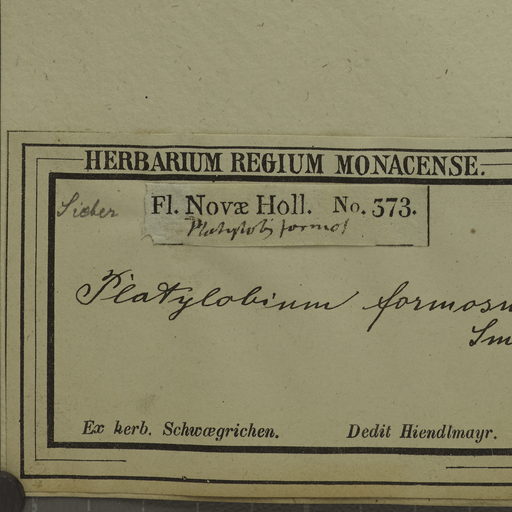 HERBARIUM REGIUM MONACENSE.
Sieber Fl. Novæ Holl. No. 373.
Platylobi formos
Platylobium formosu
Sm
Ex herb. Schwægrichen. Dedit Hiendlmayr.